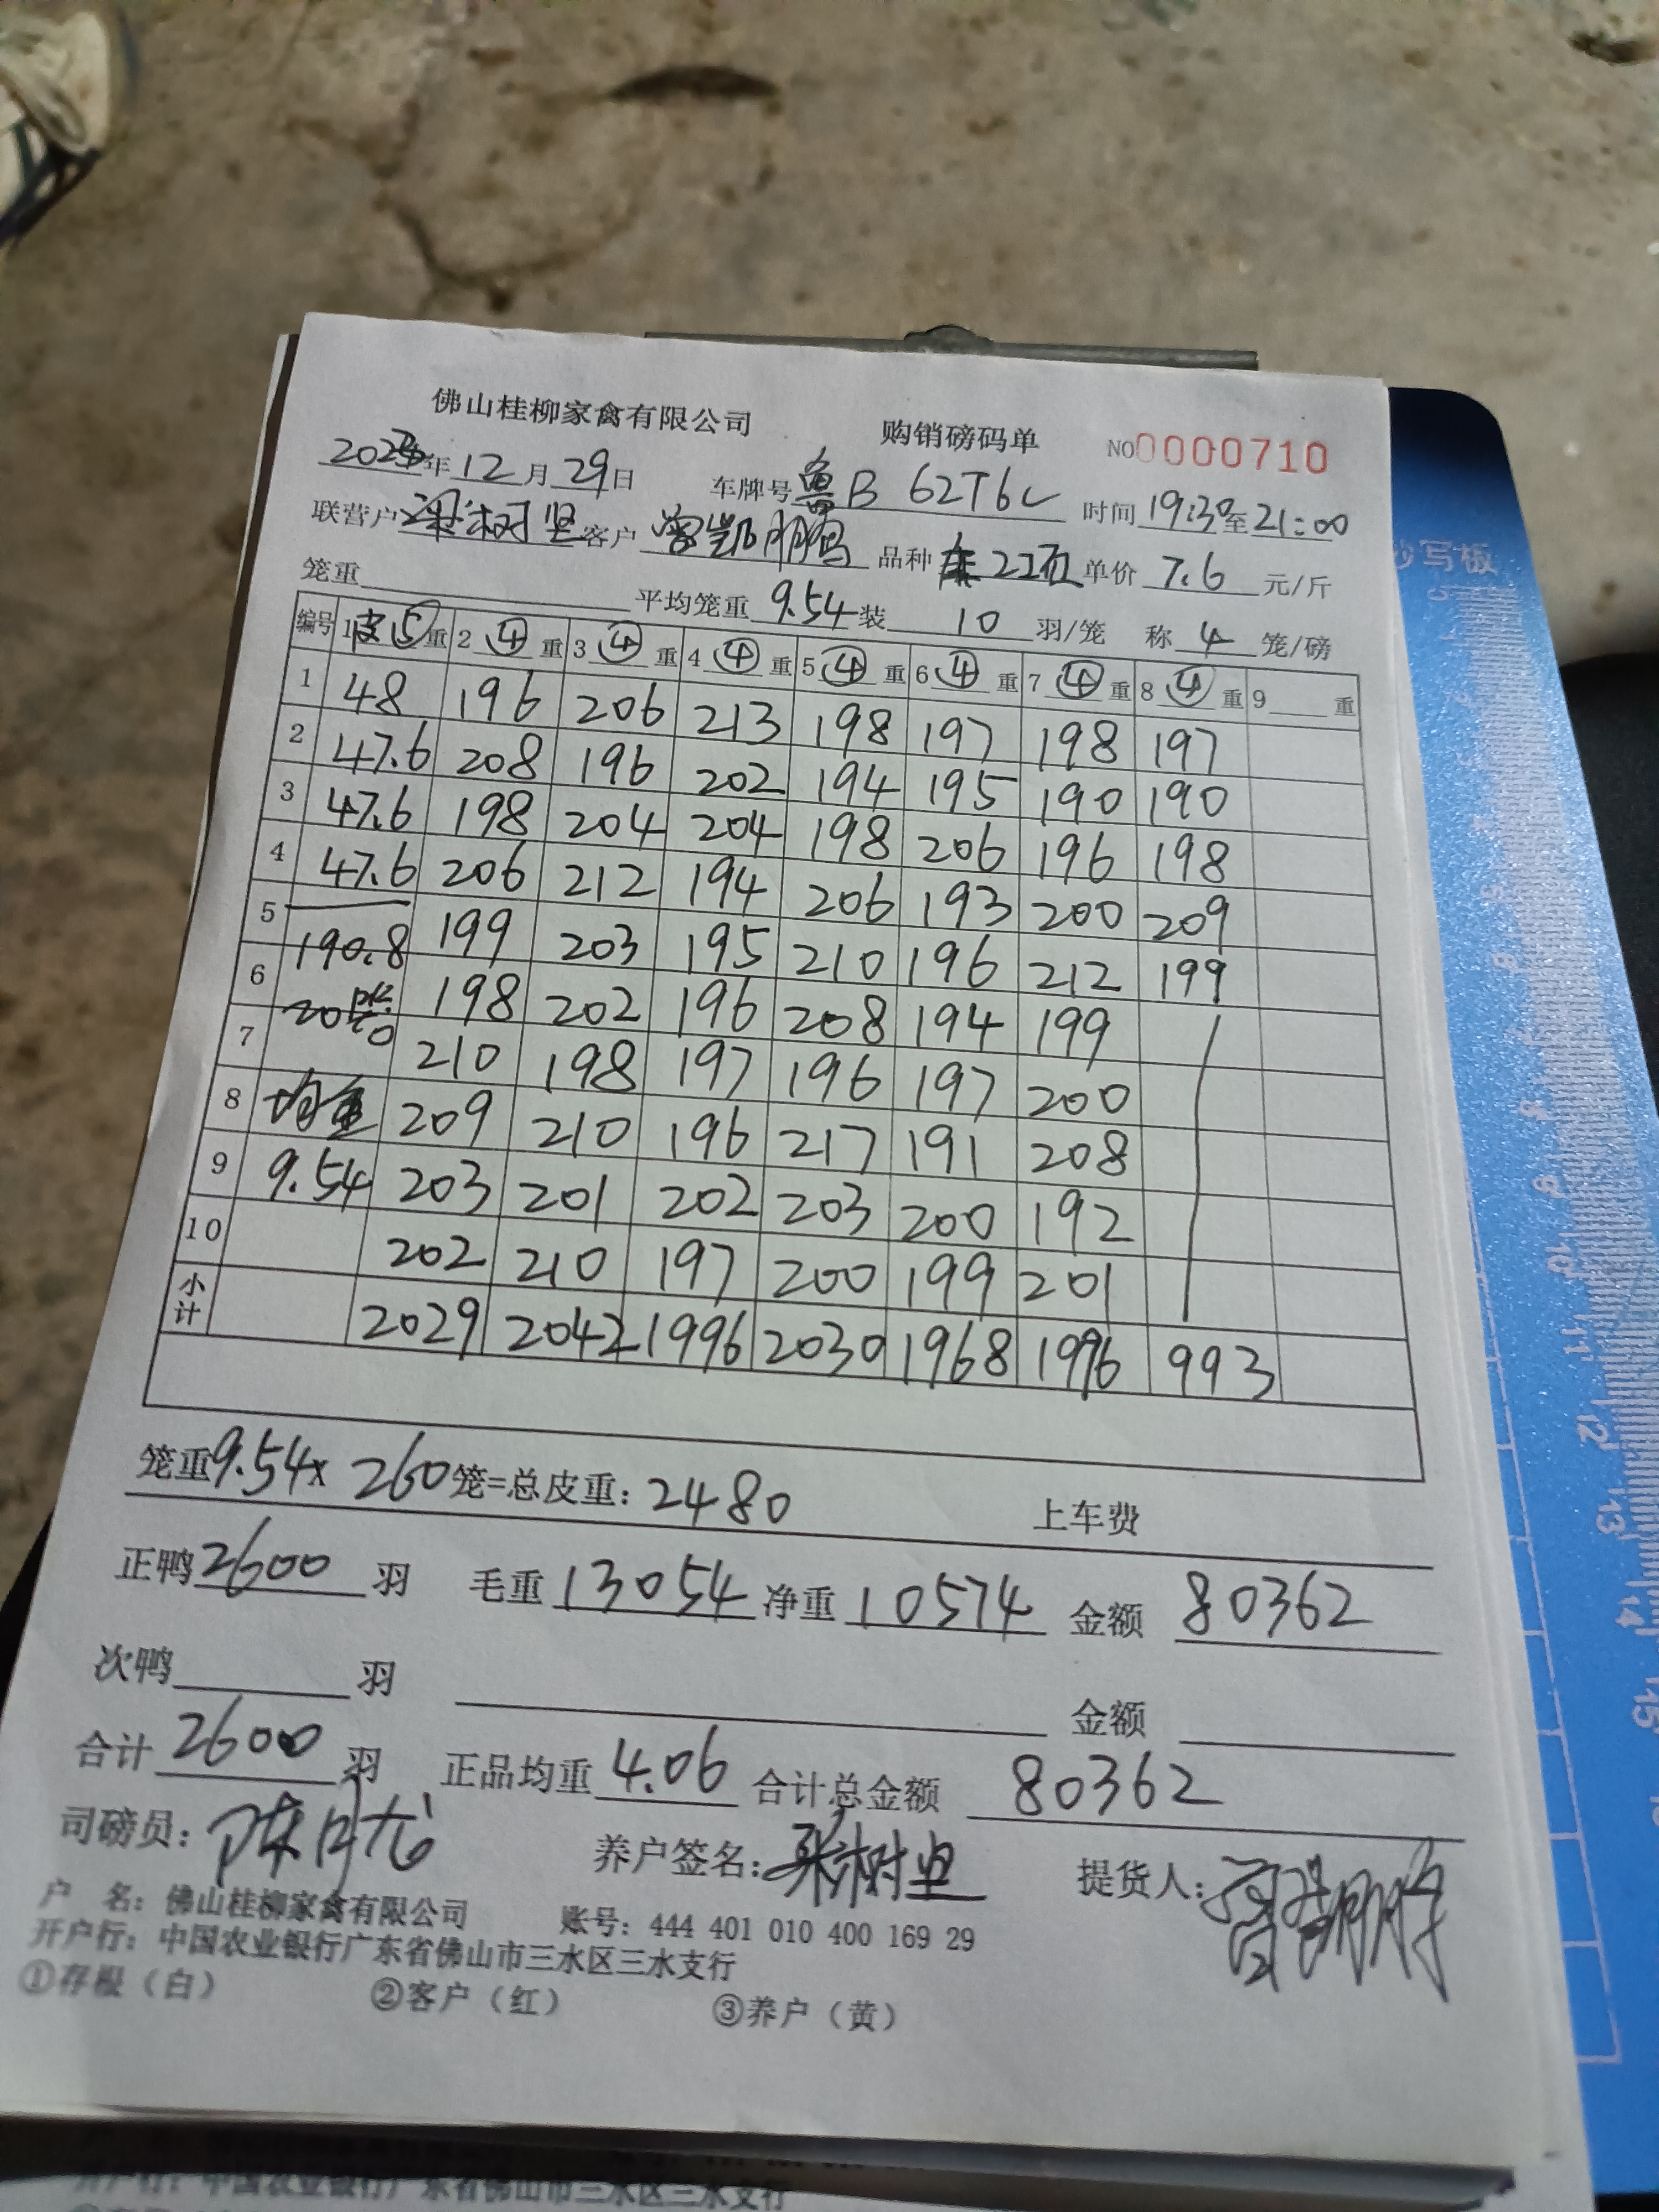 佛山桂柳家禽有限公司 购销磅码单 NO0000710
年12月29日 车牌号鲁B 62T6L 时间19:30至21:00
联营户 树坚客户 曾凯鹏 品种 单价 7.6 元/斤
笼重 平均笼重 9.54 装 10 羽/笼 称 4 笼/磅
编号 1皮⑤重 2 ④ 重 3 ④ 重 4 ④ 重 5 ④ 重 6 ④ 重 7 ④ 重 8 ④ 重 9 重
1 48 196 206 213 198 197 198 197
2 47.6 208 196 202 194 195 190 190
3 47.6 198 204 204 198 206 196 198
4 47.6 206 212 194 206 193 200 209
5 190.8 199 203 195 210 196 212 199
6 20 198 202 196 208 194 199
7 210 198 197 196 197 200
8 均重 209 210 196 217 191 208
9 9.54 203 201 202 203 200 192
10 202 210 197 200 199 201
小计 2029 2042 1996 2030 1968 1996 993
笼重9.54x 260笼=总皮重：2480 上车费
正鸭 2600 羽 毛重 13054 净重 10574 金额 80362
次鸭 羽 金额
合计 2600 羽 正品均重 4.06 合计总金额 80362
司磅员： 养户签名： 树坚 提货人：曾凯鹏
户 名：佛山桂柳家禽有限公司 账号：444 401 010 400 169 29
开户行：中国农业银行广东省佛山市三水区三水支行
①存根（白） ②客户（红） ③养户（黄）
抄写板